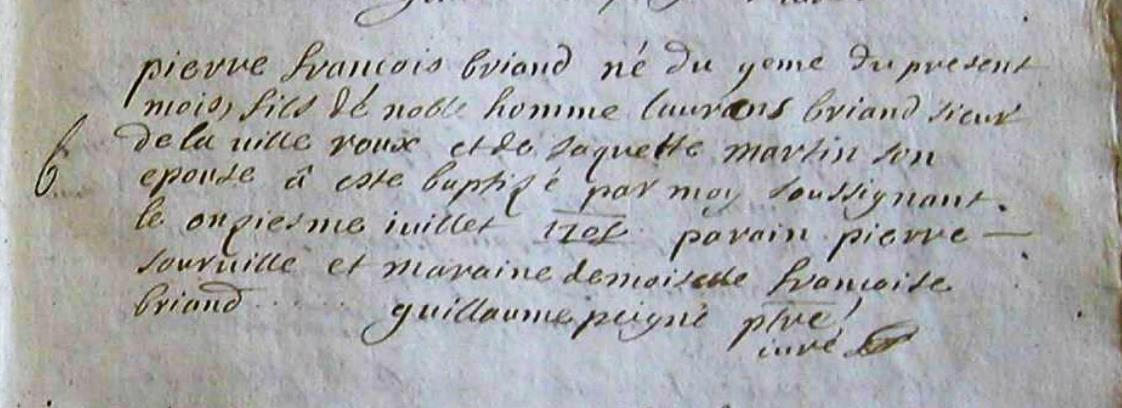 pierre francois briand né du 9eme du present
mois, fils de noble homme laurans briand sieur
de la ville roux et de Jaquette martin son
epouse â este baptizé par moy soussignant.
le onziesme iuillet parain pierre —
Jourville et maraine demoiselle francoise
briand guillaume peigné ptre,
curé
6